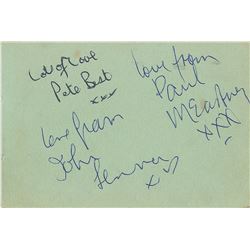 Lots of Love
Pete Best
xxx
love from
Paul
McCartney
XXX
love from
John
Lennon
x